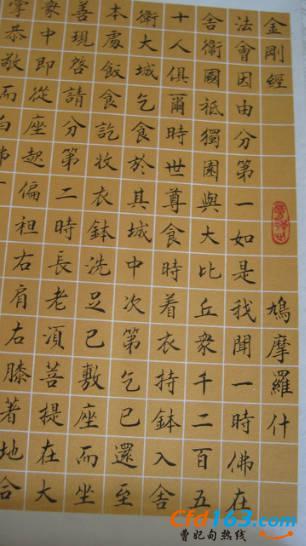 金剛經 鳩摩羅什
法會因由分第一如是我聞一時佛在
舍衛國祇獨園與大比丘衆千二百五
十人俱爾時世尊食時着衣持鉢入舍
衛大城乞食於其城中次第乞已還至
本處飯食訖收衣鉢洗足已敷座而坐
善現啓請分第二時長老須菩提在大
衆中即從座起偏袒右肩右膝著地合
掌恭敬而白佛
Cfd163.com
曹妃甸热线